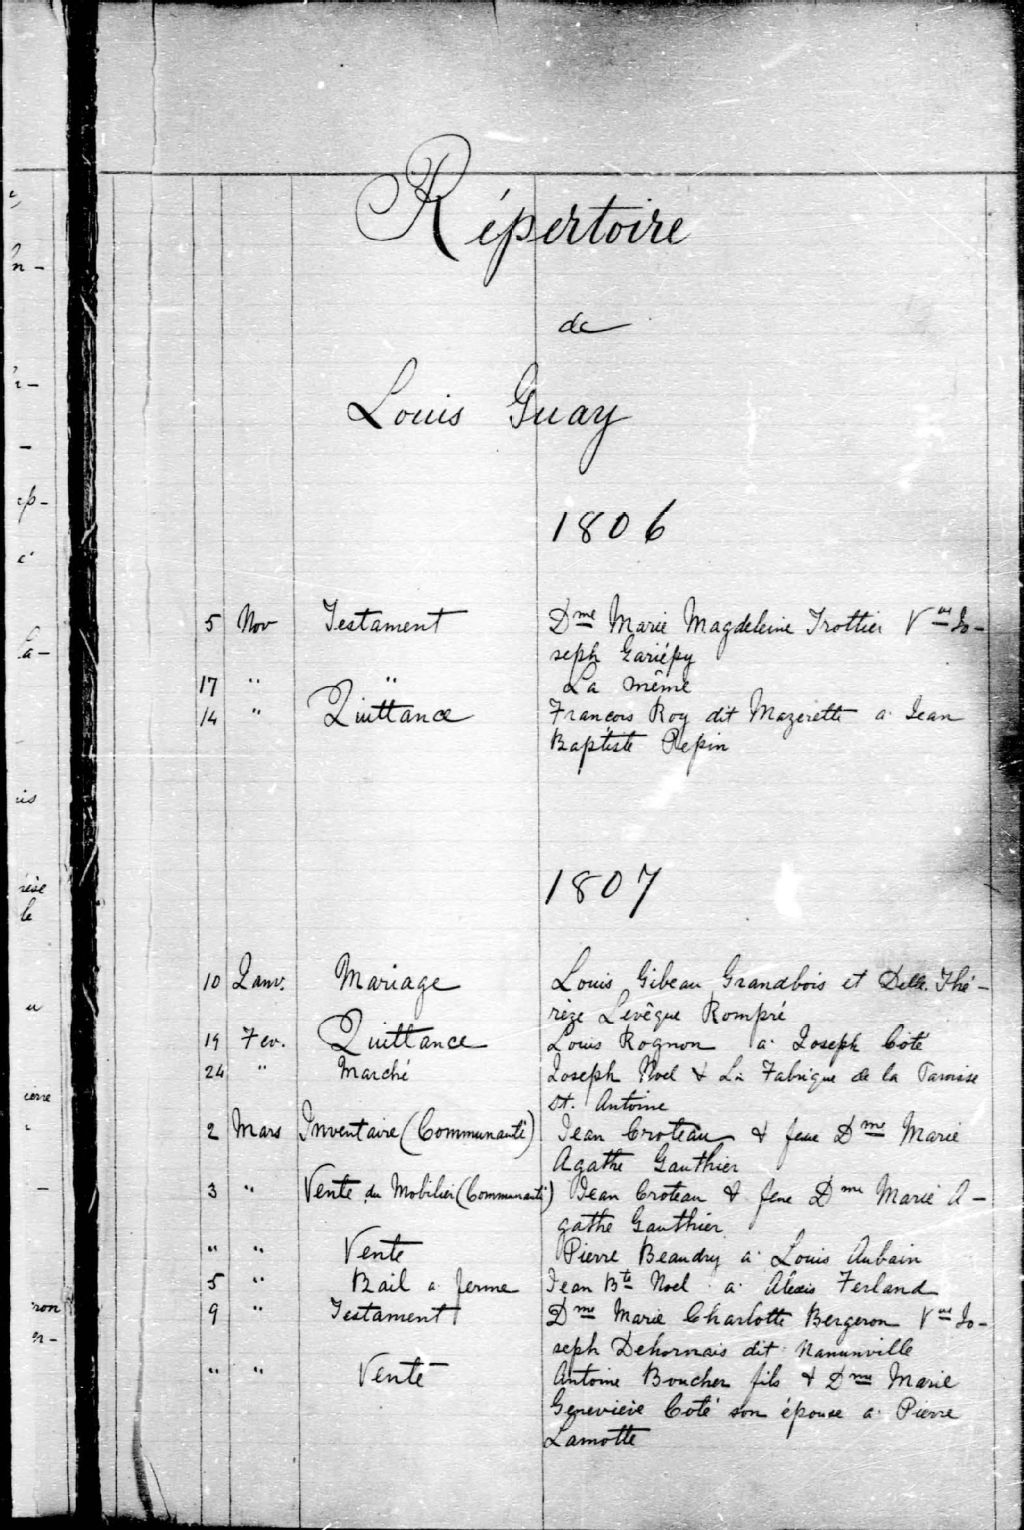 Répertoire
de
Louis Guay
1806
5 Nov Testament Dme Marie Magdeleine Trottier Vve Jo-
seph Gariépy
17 " " La même
14 " Quittance Francois Roy dit Mazerette a Jean
Baptiste Pepin
1807
10 Janv. Mariage Louis Gibeau Grandbois et Delle. Thé-
rèze Levêque Rompré
19 Fev. Quittance Louis Rognon a Joseph Coté
24 " Marché Joseph Noel & La Fabrique de la Paroisse
St. Antoine
2 Mars Inventaire (Communauté) Jean Croteau & feue Dme Marie
Agathe Gauthier
3 " Vente du Mobilier (Communauté) Jean Croteau & feue Dme Marie A-
gathe Gauthier
" " Vente Pierre Beaudry a Louis Aubain
5 " Bail a ferme Jean Bte Noel a Alexis Ferland
9 " Testament Dme Marie Charlotte Bergeron Vve Jo-
seph Dehornais dit
" " Vente Antoine Boucher fils & Dme Marie
Genevieve Coté son épouse a Pierre
Lamotte